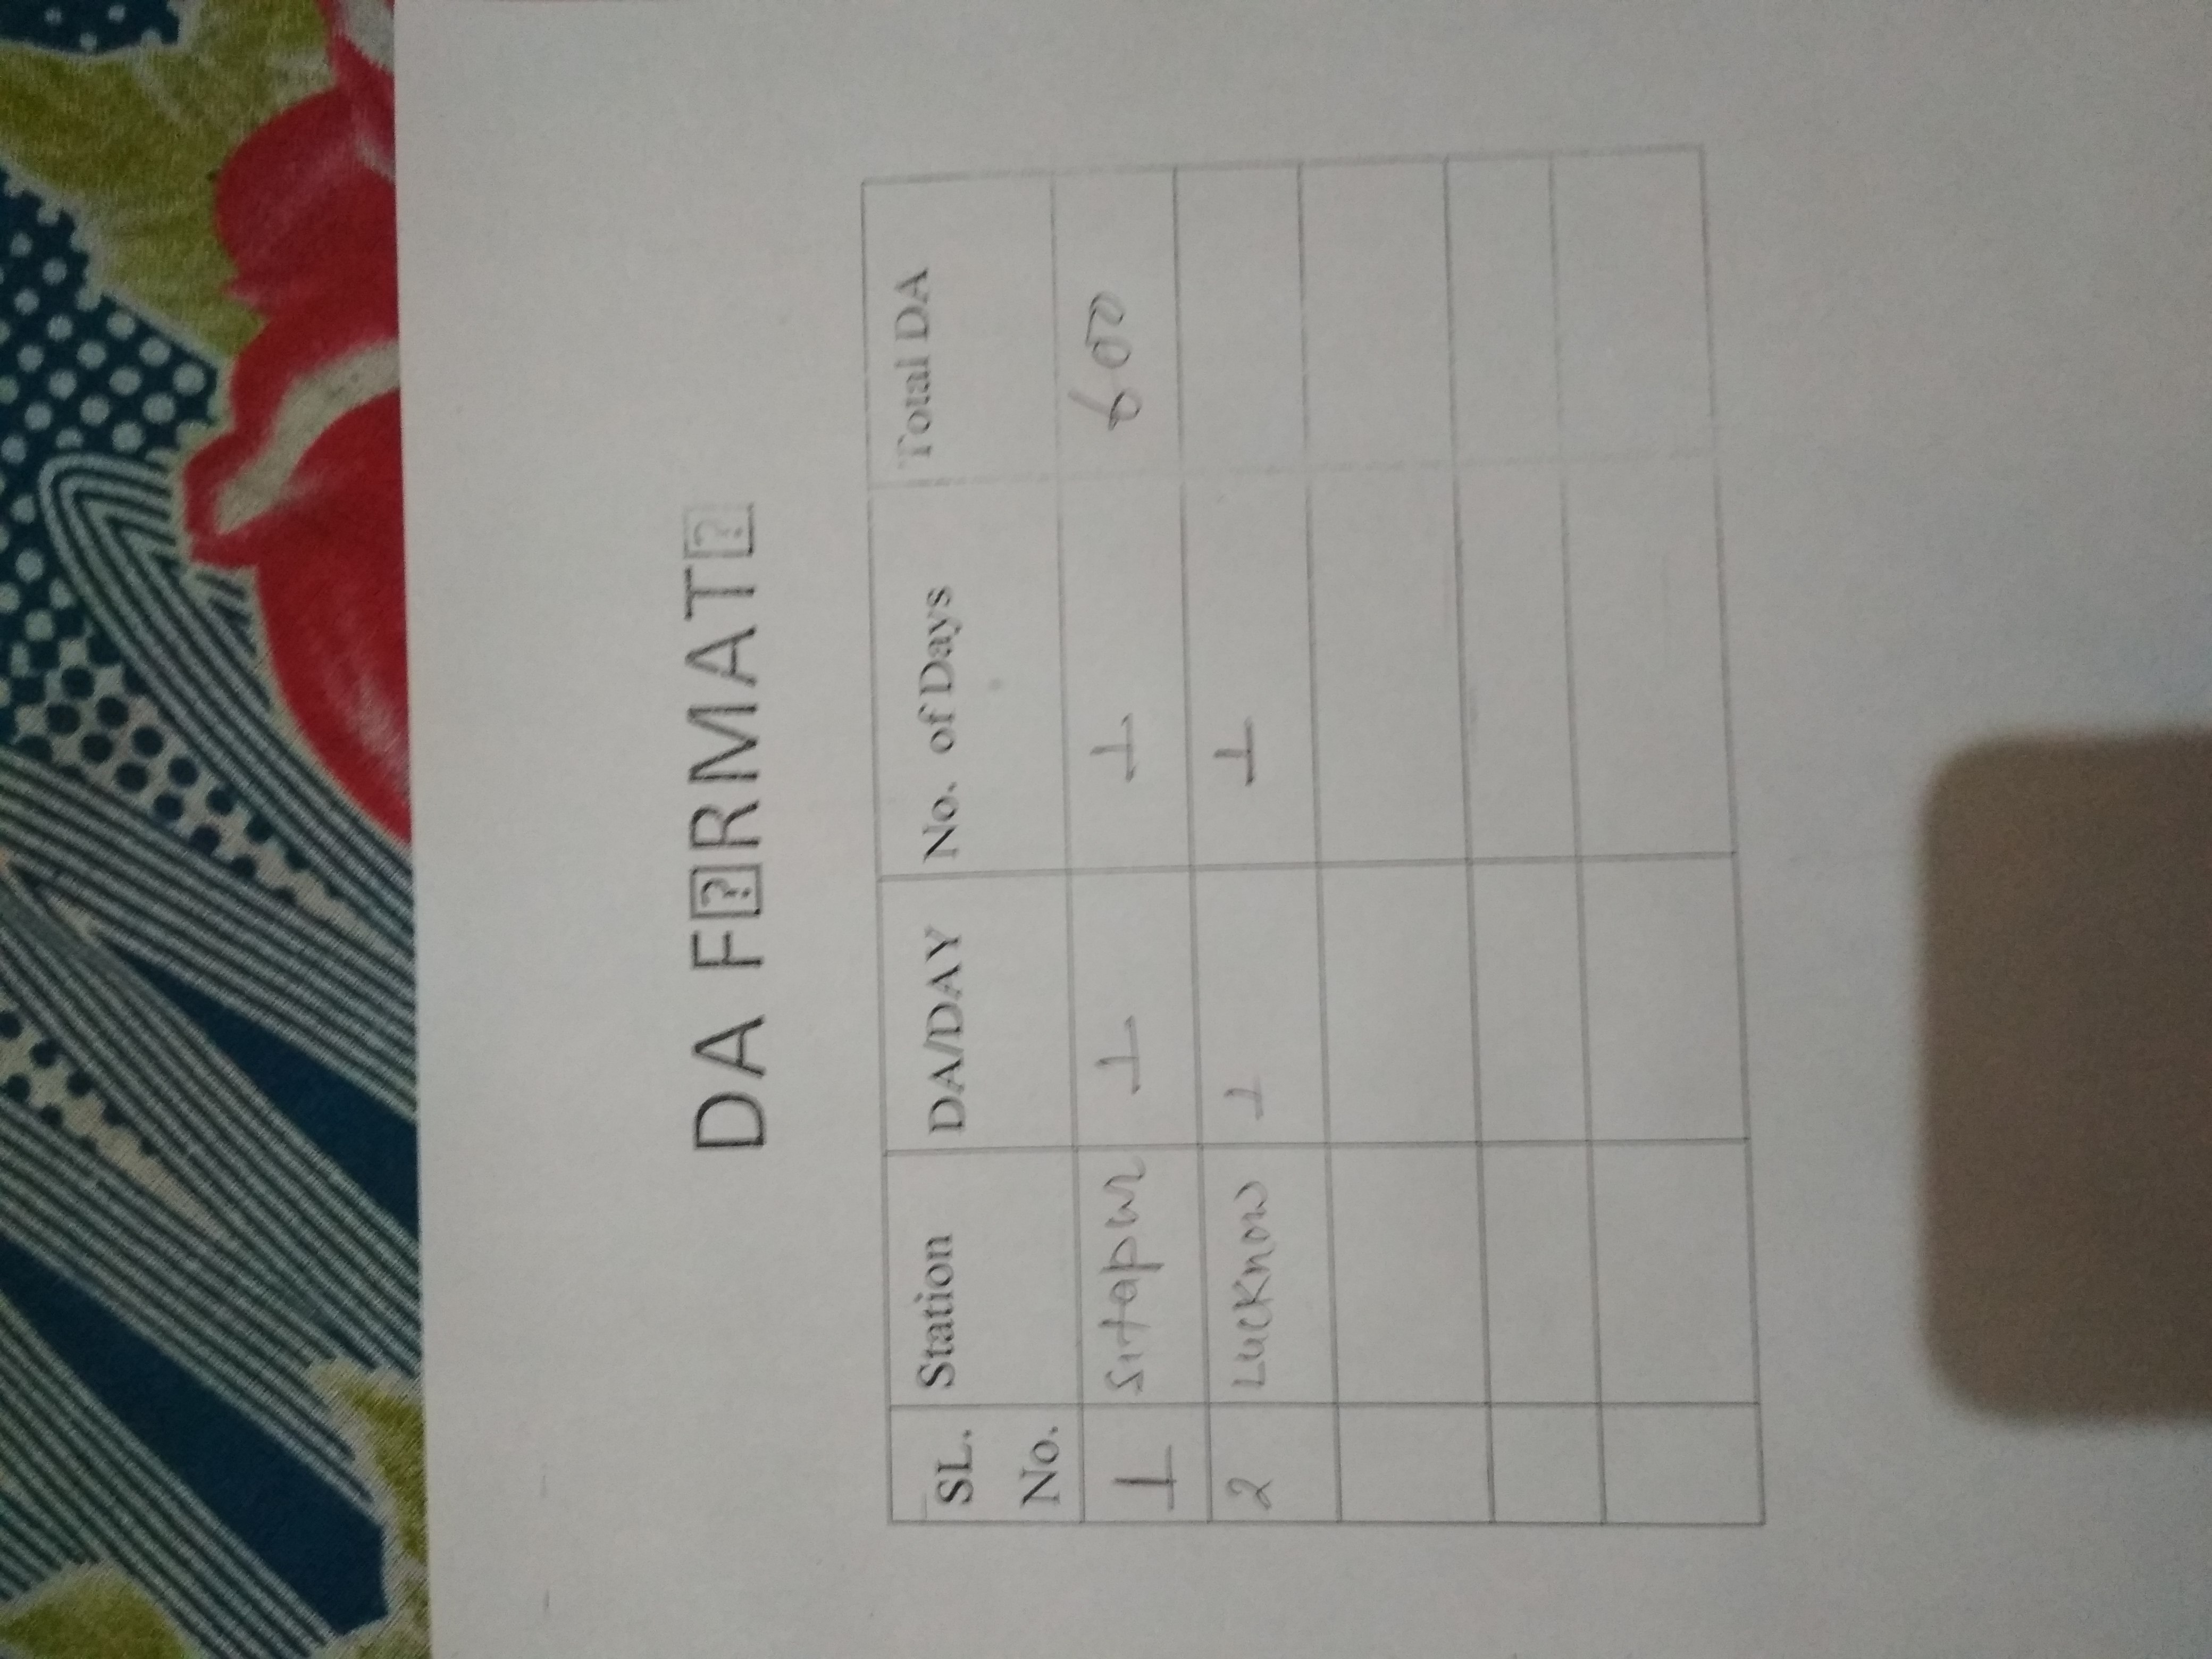 DA F⍰RMAT⍰
SL. No. Station DA/DAY No. of Days Total DA
1 Sitapur 1 1 600
2 Lucknow 1 1